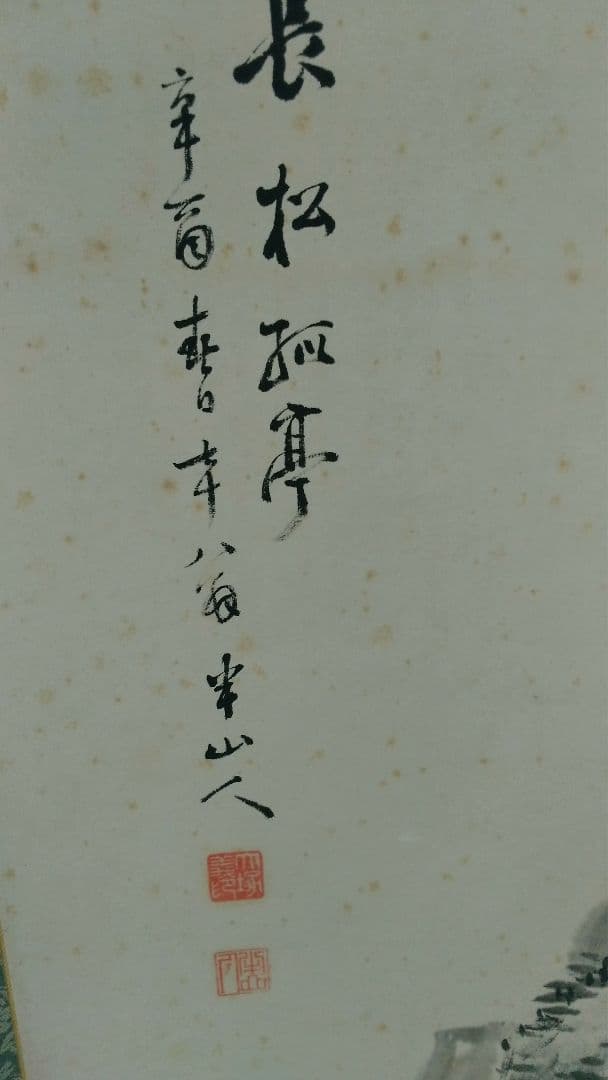 長松孤亭
辛酉春日七十八翁半山人